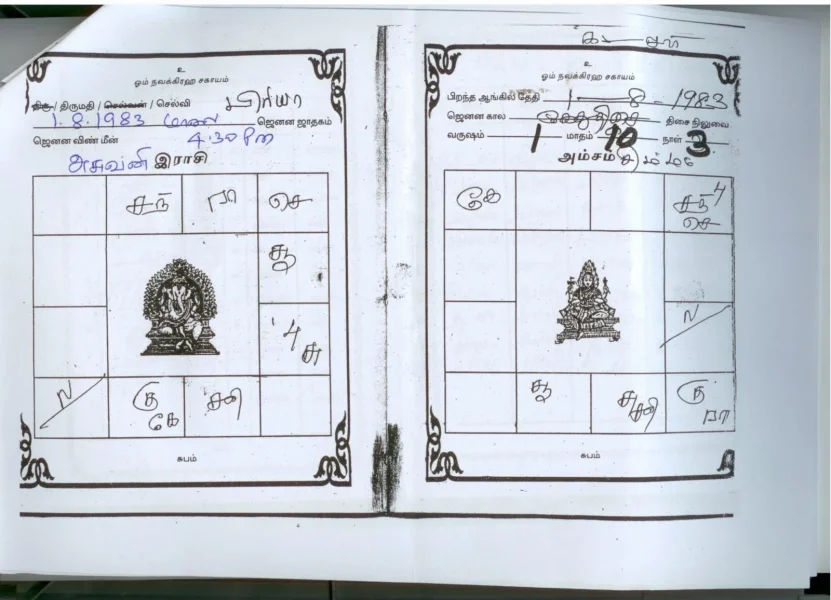 உ
ஓம் நவக்கிரஹ சகாயம்
திரு / திருமதி / செல்வன் / செல்வி பிரியா
1.8.1983 மாலை ஜெனன ஜாதகம்
ஜெனன விண் மீன் 4.30 Pm
அசுவனி இராசி
சந் ரா செ
சூ
பு சு
ல குரு கே சனி
சுபம்
உ
ஓம் நவக்கிரஹ சகாயம்
பிறந்த ஆங்கில தேதி 1 - 8 - 1983
ஜெனன கால திசை நிலுவை
வருஷம் 1 மாதம் 10 நாள் 3
அம்சம்
கே சந் பு
செ
ல
சூ சு சனி கு ரா
சுபம்